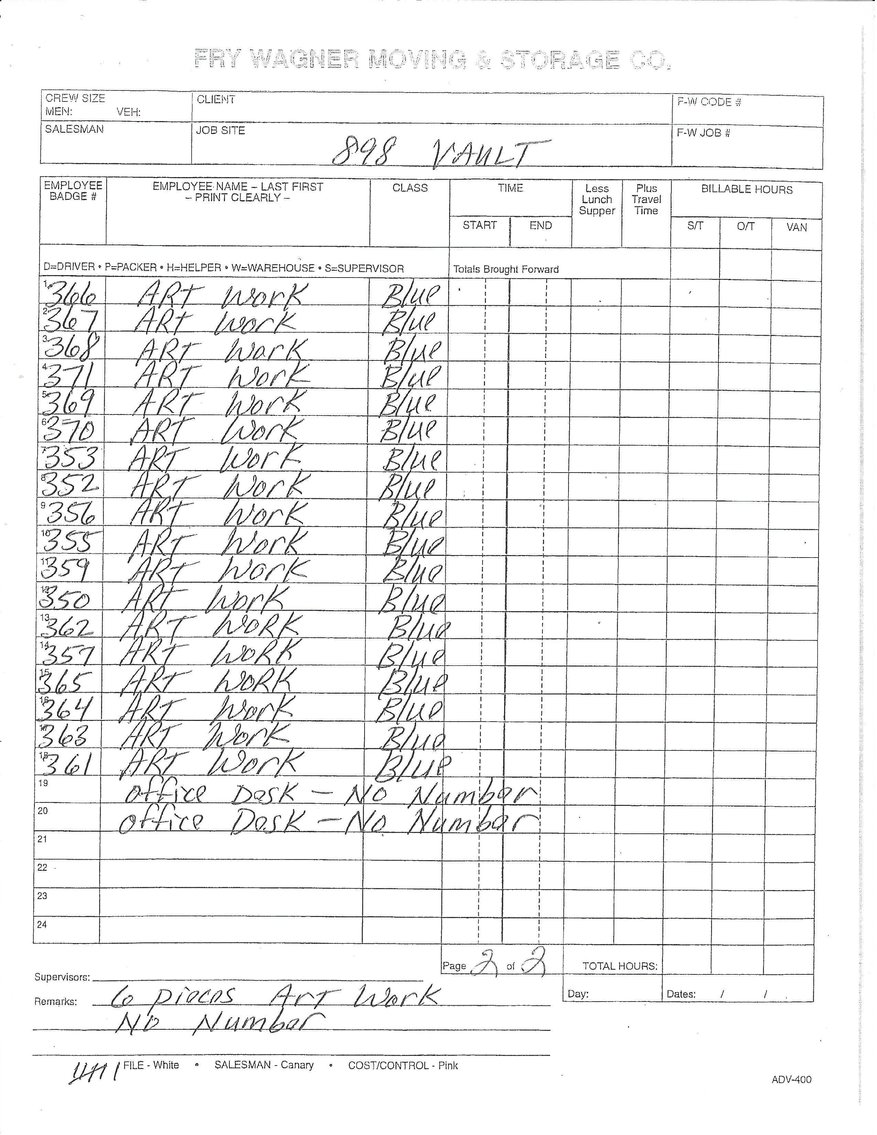 FRY WAGNER MOVING & STORAGE CO.
CREW SIZE
MEN: VEH:
CLIENT
F-W CODE #
SALESMAN
JOB SITE
898 VAULT
F-W JOB #
EMPLOYEE BADGE # EMPLOYEE NAME – LAST FIRST – PRINT CLEARLY – CLASS TIME Less Lunch Supper Plus Travel Time BILLABLE HOURS
START END S/T O/T VAN
D=DRIVER • P=PACKER • H=HELPER • W=WAREHOUSE • S=SUPERVISOR Totals Brought Forward
1 366 ART Work Blue
2 367 ART Work Blue
3 368 ART Work Blue
4 371 ART Work Blue
5 369 ART Work Blue
6 370 ART Work Blue
7 353 ART Work Blue
8 352 ART Work Blue
9 356 ART Work Blue
10 355 ART Work Blue
11 359 ART Work Blue
12 350 ART Work Blue
13 362 ART WORK Blue
14 357 ART WORK Blue
15 365 ART WORK Blue
16 364 ART Work Blue
17 363 ART Work Blue
18 361 ART Work Blue
19 office Desk – No Number
20 office Desk – No Number
21
22
23
24
Page 2 of 2 TOTAL HOURS:
Supervisors:
Remarks: 6 pieces Art Work Day: Dates: / / .
No Number
FILE - White • SALESMAN - Canary • COST/CONTROL - Pink
ADV-400